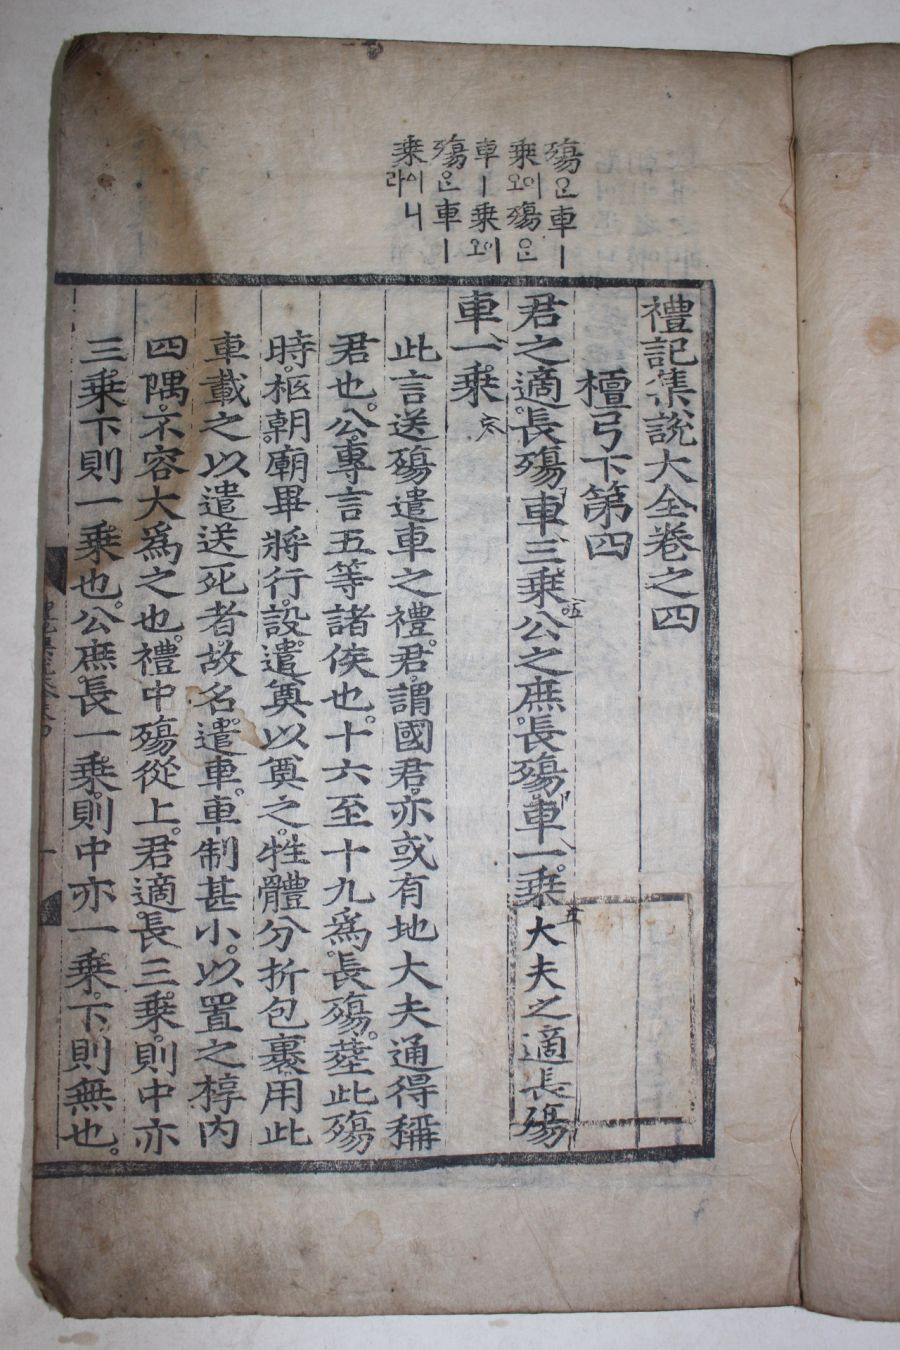 殤은車ㅣ
乘오이殤은
車ㅣ乘오이
殤은車ㅣ
乘이니라
禮記集說大全卷之四
檀弓下第四
君之適長殤車三乘公之庶長殤車一乘大夫之適長殤
車一乘
此言送殤遣車之禮君謂國君亦或有地大夫通得稱
君也公專言五等諸侯也十六至十九爲長殤葬此殤
時柩朝廟畢將行設遣奠以奠之牲體分折包裹用此
車載之以遣送死者故名遣車車制甚小以置之椁内
四隅不容大爲之也禮中殤從上君適長三乘則中亦
三乘下則一乘也公庶長一乘則中亦一乘下則無也